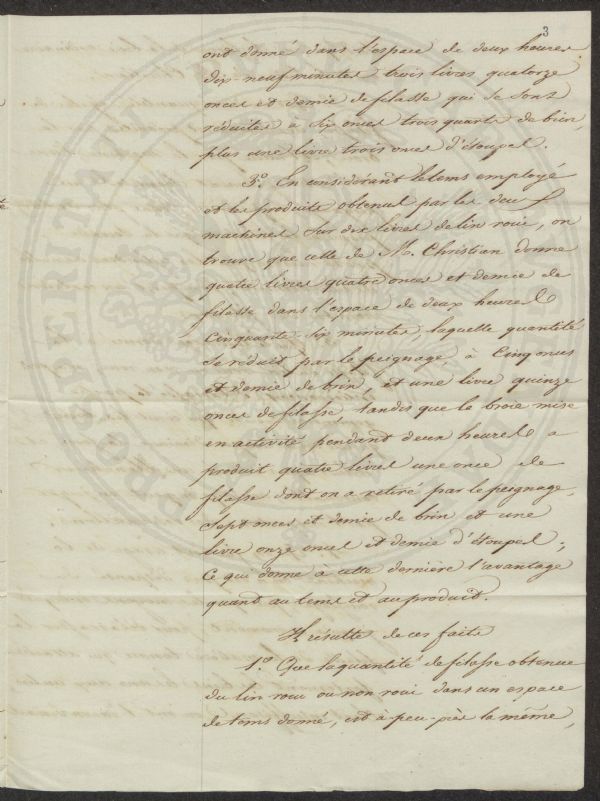 3
ont donné dans l'espace de deux heures
dix-neuf minutes trois livres quatorze
onces et demie de filasse qui se sont
réduites à six onces trois quarts de bien,
plus une livre trois onces d'étoupes.
3.° En considérant le tems employé
et les produits obtenus par les deux
machines sur dix livres de lin roui, on
trouve que celle de M. Christian donne
quatre livres quatre onces et demie de
filasse dans l'espace de deux heures
cinquante-six minutes, laquelle quantité
se réduit par le peignage à cinq onces
et demie de brin, et une livre quinze
onces de filasse, tandis que la broie mise
en activité pendant deux heures a
produit quatre livres une once de
filasse dont on a retiré par le peignage,
sept onces et demie de brin et une
livre onze onces et demie d'étoupes;
Ce qui donne à cette dernière l'avantage
quant au tems et au produit.
Il résulte de ces faits
1.° Que la quantité de filasse obtenue
du lin roui ou non roui dans un espace
de tems donné, est à peu-près la même,
PROSPERITATI